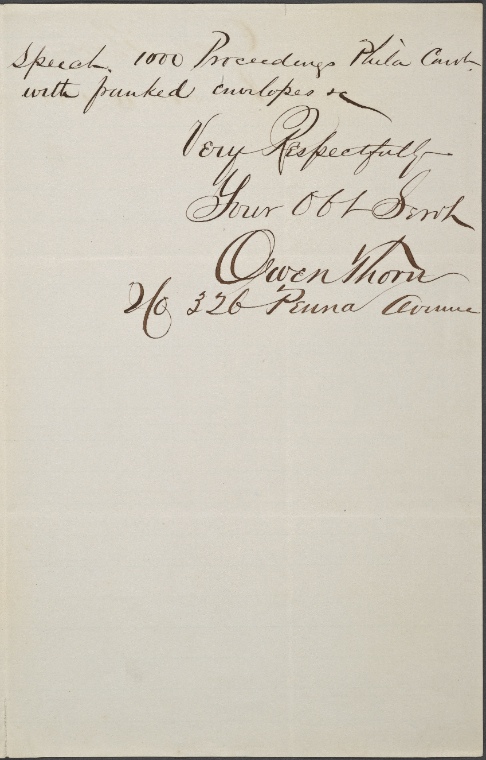 Speech. 1000 Proceedings Phila Conv.
with franked envelopes &c
Very Respectfully
Your Obt Servt
Owen Thorn
No 326 Penna Avenue